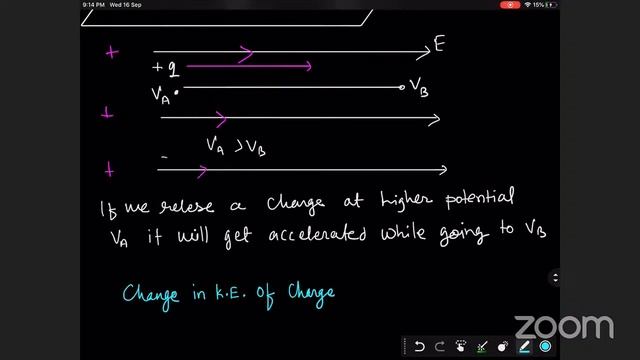 9:14 PM Wed 16 Sep
15%
+ E
+ q
VA VB
+
VA > VB
+
If we relese a charge at higher potential
VA it will get accelerated while going to VB
Change in K.E. of Charge
zoom